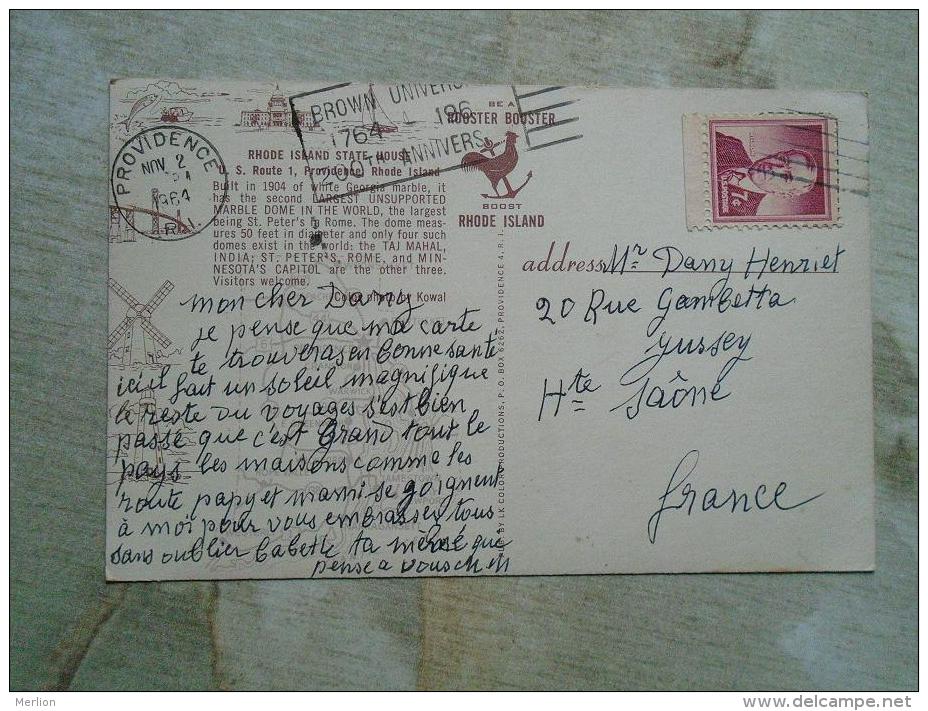 PROVIDENCE
NOV 2
1964
R.I.
BROWN UNIVERSI
1764 196
200TH ANNIVERS
BE A
ROOSTER BOOSTER
BOOST
RHODE ISLAND
7¢
U.S. POSTAGE
RHODE ISLAND STATE HOUSE
U. S. Route 1, Providence, Rhode Island
Built in 1904 of white Georgia marble, it
has the second LARGEST UNSUPPORTED
MARBLE DOME IN THE WORLD, the largest
being St. Peter's in Rome. The dome meas-
ures 50 feet in diameter and only four such
domes exist in the world: the TAJ MAHAL,
INDIA; ST. PETER'S, ROME, and MIN-
NESOTA'S CAPITOL are the other three.
Visitors welcome.
Color photo by Kowal
mon cher Dany
je pense que ma carte
te trouveras en bonne santé
ici il fait un soleil magnifique
le reste du voyages s'est bien
passé que c'est Grand tout le
pays les maisons comme les
route papy et mami se joignent
à moi pour vous embrasser tous
sans oublier Babette ta mémé que
pense a vous
WARWICK
PUB. BY LK COLOR PRODUCTIONS, P. O. BOX 6262, PROVIDENCE 4, R. I.
address Mr Dany Henriet
20 Rue Gambetta
jussey
Hte Saône
france
Merlion
www.delcampe.net